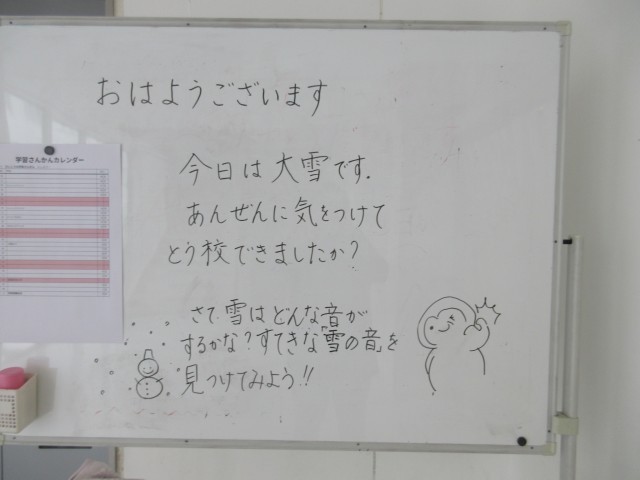 おはようございます
学習さんかんカレンダー
今日は大雪です.
あんぜんに気をつけて
とう校できましたか?
さて雪はどんな音が
するかな?すてきな「雪の音」を
見つけてみよう!!